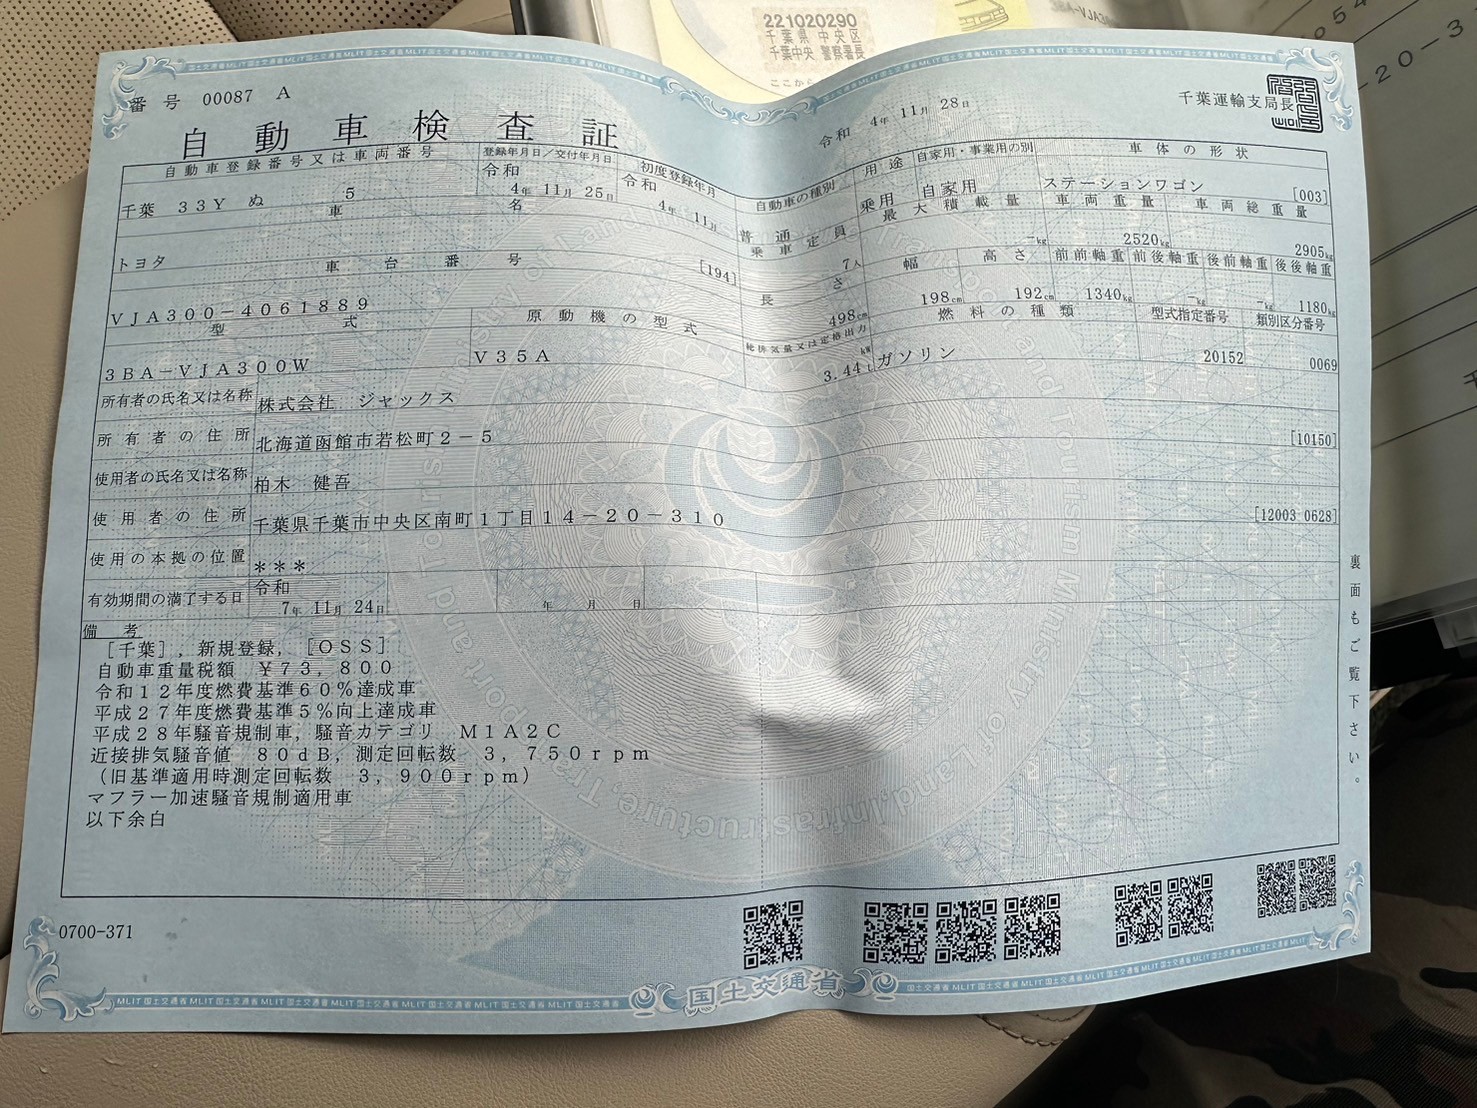 221020290
千葉県 中央区
千葉中央 警察署長
ここから
番号 00087 A
自動車検査証
令和 4年 11月 28日
千葉運輸支局長
自動車登録番号又は車両番号
登録年月日／交付年月日
初度登録年月
自動車の種別
用途
自家用・事業用の別
車体の形状
千葉 33Y ぬ 5
令和 4年 11月 25日
令和 4年 11月
普通
乗用
自家用
ステーションワゴン [003]
車名
乗車定員
最大積載量
車両重量
車両総重量
トヨタ [194]
7人
－kg
2520kg
2905kg
車台番号
長さ
幅
高さ
前前軸重
前後軸重
後前軸重
後後軸重
VJA300－4061889
498cm
198cm
192cm
1340kg
－kg
－kg
1180kg
型式
原動機の型式
総排気量又は定格出力
燃料の種類
型式指定番号
類別区分番号
3BA－VJA300W
V35A
kW
3.44L
ガソリン
20152
0069
所有者の氏名又は名称 株式会社 ジャックス
所有者の住所 北海道函館市若松町2－5 [10150]
使用者の氏名又は名称 柏木 健吾
使用者の住所 千葉県千葉市中央区南町1丁目14－20－310 [12003 0628]
使用の本拠の位置 ＊＊＊
有効期間の満了する日 令和 7年 11月 24日 年 月 日
備考
[千葉]，新規登録，[OSS]
自動車重量税額 ￥73，800
令和12年度燃費基準60％達成車
平成27年度燃費基準5％向上達成車
平成28年騒音規制車，騒音カテゴリ M1A2C
近接排気騒音値 80dB，測定回転数 3，750rpm
（旧基準適用時測定回転数 3，900rpm）
マフラー加速騒音規制適用車
以下余白
裏面もご覧下さい。
0700-371
国土交通省